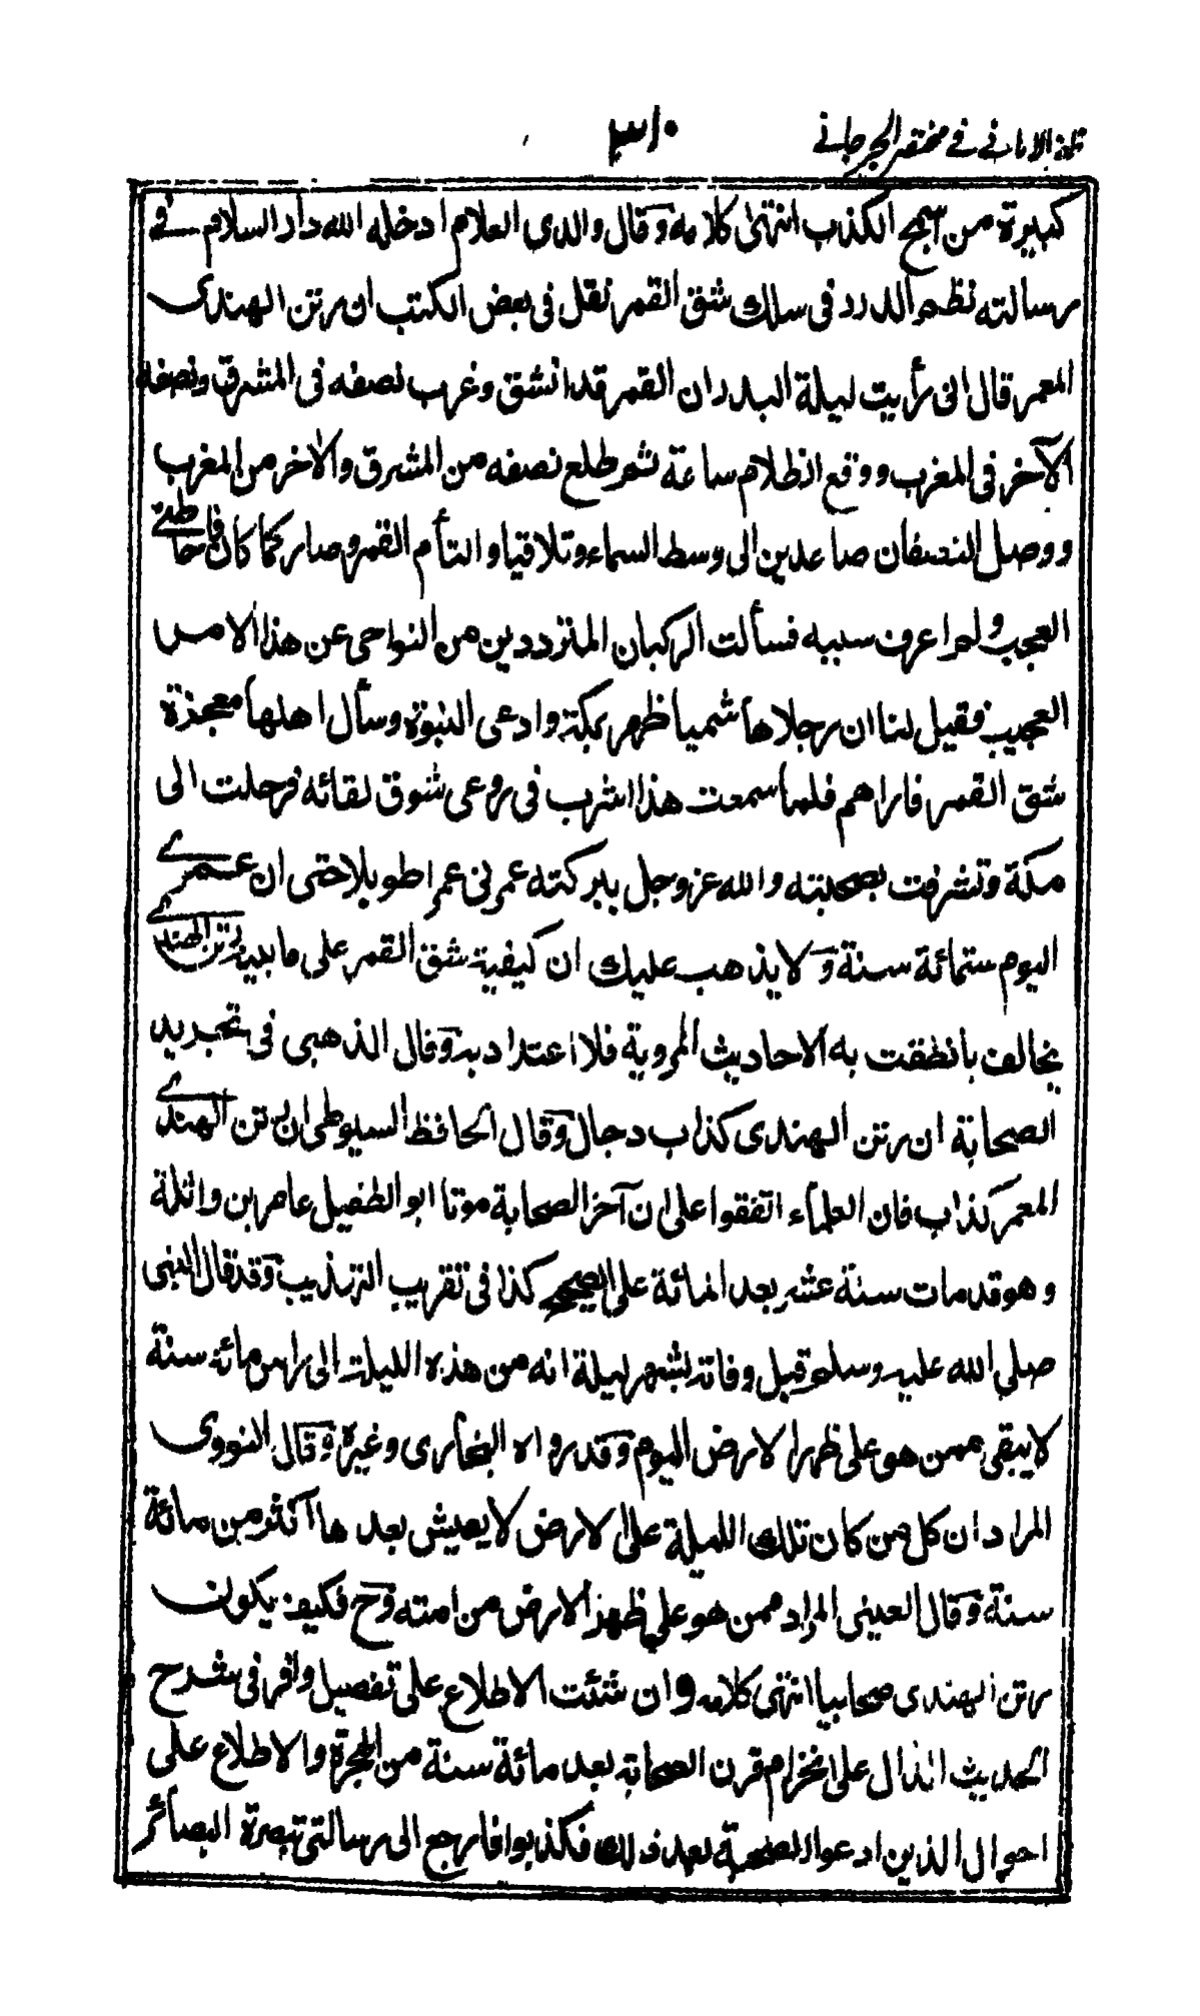 ظفر الامانى فى مختصر الجرجانى
٣١٠
كبيرة من اقبح الكذب انتهى كلامه وقال والدى العلام ادخله الله دار السلام فى
رسالته نظم الدرر فى سلك شق القمر نقل فى بعض الكتب ان رتن الهندى
المعمر قال انى رأيت ليلة البدر ان القمر قد انشق وغرب نصفه فى المشرق ونصفه
الآخر فى المغرب ووقع الظلام ساعة ثم طلع نصفه من المشرق والآخر من المغرب
ووصل النصفان صاعدين الى وسط السماء وتلاقيا والتأم القمر وصار كما كان فاحاطنى
العجب ولم اعرف سببه فسألت الركبان المترددين من النواحى عن هذا الامر
العجيب فقيل لنا ان رجلا هاشميا ظهر بمكة وادعى النبوة وسأل اهلها معجزة
شق القمر فاراهم فلما سمعت هذا اشرب فى روعى شوق لقائه فرحلت الى
مكة وتشرفت بصحبته والله عز وجل ببركته عمرنى عمرا طويلا حتى ان عمرى
اليوم ستمائة سنة ولا يذهب عليك ان كيفية شق القمر على ما بينه رتن الهندى
يخالف ما نطقت به الاحاديث المروية فلا اعتداد به وقال الذهبى فى تجريد
الصحابة ان رتن الهندى كذاب دجال وقال الحافظ السيوطى ان رتن الهندى
المعمر كذاب فان العلماء اتفقوا على ان آخر الصحابة موتا ابو الطفيل عامر بن واثلة
وهو قد مات سنة عشر بعد المائة على الصحيح كذا فى تقريب التهذيب وقد قال النبى
صلى الله عليه وسلم قبل وفاته بشهر ليلة انه من هذه الليلة الى راس مائة سنة
لا يبقى ممن هو على ظهر الارض اليوم وقد رواه البخارى وغيره وقال النووى
المراد ان كل من كان تلك الليلة على الارض لا يعيش بعدها اكثر من مائة
سنة وقال العينى المراد ممن هو على ظهر الارض من امته وح فكيف يكون
رتن الهندى صحابيا انتهى كلامه وان شئت الاطلاع على تفصيل وافر فى شرح
الحديث الدال على انخرام قرن الصحابة بعد مائة سنة من الهجرة والاطلاع على
احوال الذين ادعوا الصحبة بعد ذلك فكذبوا فارجع الى رسالتى تبصرة البصائر